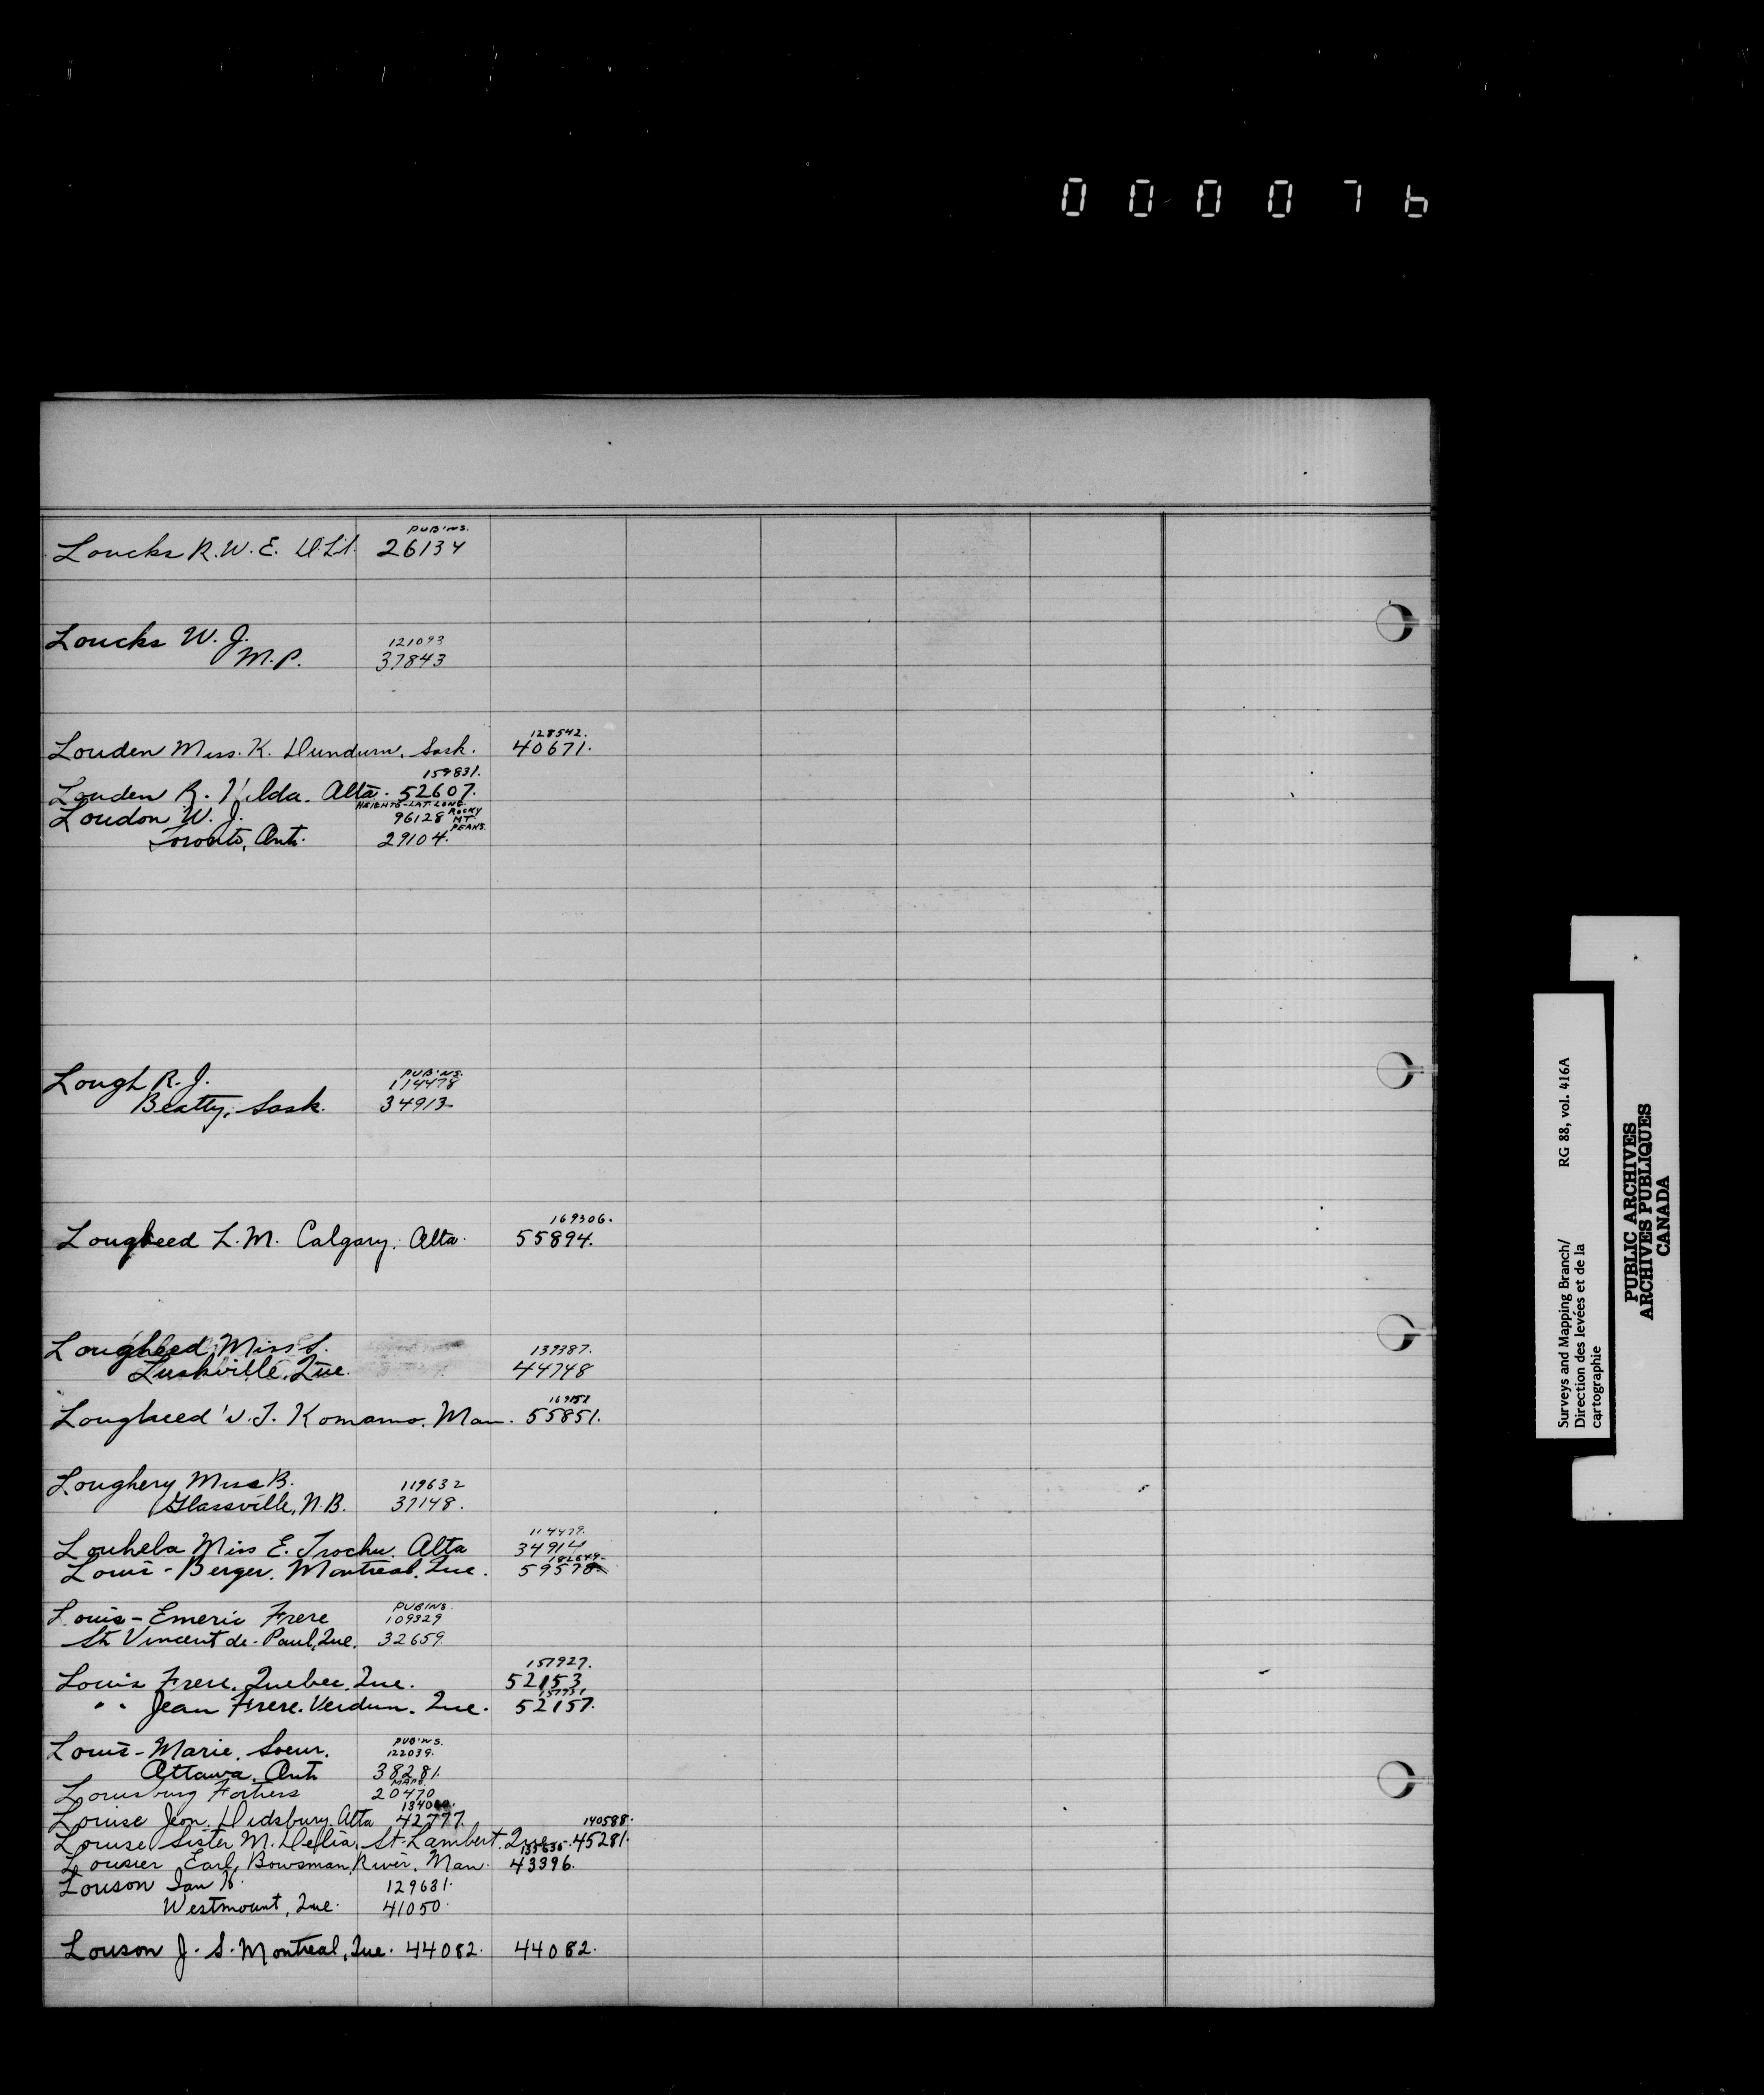 000076
PUB'NS.
Loucks R.W.E. D.L.S. 26134
Loucks W. J. 121093
M.P. 37843
128542.
Louden Miss. K. Dundurn. Sask. 40671.
159831.
Louden R. Hilda. Alta. 52607.
HEIGHTS-LAT. LONG.
Loudon W. J. 96128 ROCKY MT. PEAKS.
Toronto, Ont. 29104.
PUB'NS.
Lough R. J. 114478
Beatty, Sask. 34913
169306.
Lougheed L. M. Calgary. Alta. 55894.
Lougheed, Miss S. 139387.
Luskville, Que. 44748
Lougheed J. Komarno. Man. 55851.
Loughery Miss B. 119632
Glassville, N.B. 37148.
114479.
Louhela Miss E. Trochu. Alta 34914
182649.
Louis-Berger. Montreal. Que. 59578
PUBINS.
Louis-Emeric Frere 109329
St. Vincent de-Paul, Que. 32659
157927.
Louis Frere. Quebec. Que. 52153
157931
" " Jean Frere. Verdun. Que. 52157.
PUB'NS.
Louis-Marie, Soeur. 122039.
Ottawa, Ont. 38281
MAPS.
Louisburg Fortress 20470
Louise Jean. Didsbury. Alta 42777.
140588.
Louise Sister M. Delia. St-Lambert. Que. 45281.
135636
Lousier Earl, Bowsman River. Man. 43396.
Louson Ian H. 129631.
Westmount, Que. 41050.
Louson J. S. Montreal, Que. 44082. 44082.
Surveys and Mapping Branch/ RG 88, vol. 416A
Direction des levées et de la
cartographie
PUBLIC ARCHIVES
ARCHIVES PUBLIQUES
CANADA